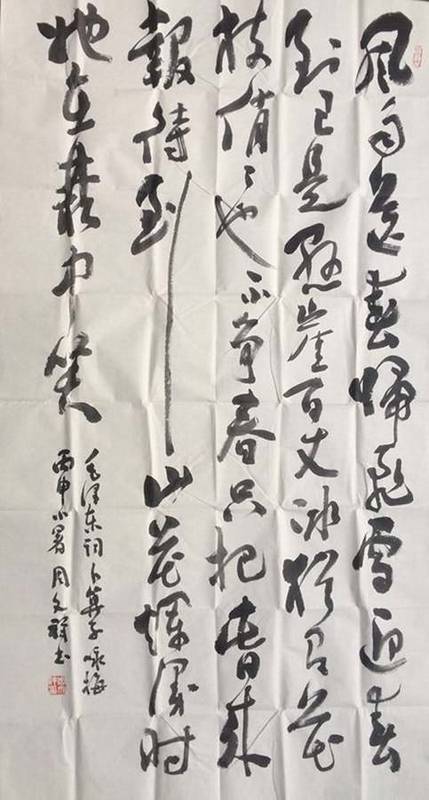 風雨送春歸飛雪迎春
到已是懸崖百丈冰猶有花
枝俏〻也不争春只把春来
報待到山花爛漫时
她在叢中笑
毛泽东词卜算子咏梅
丙申小暑周文祥书